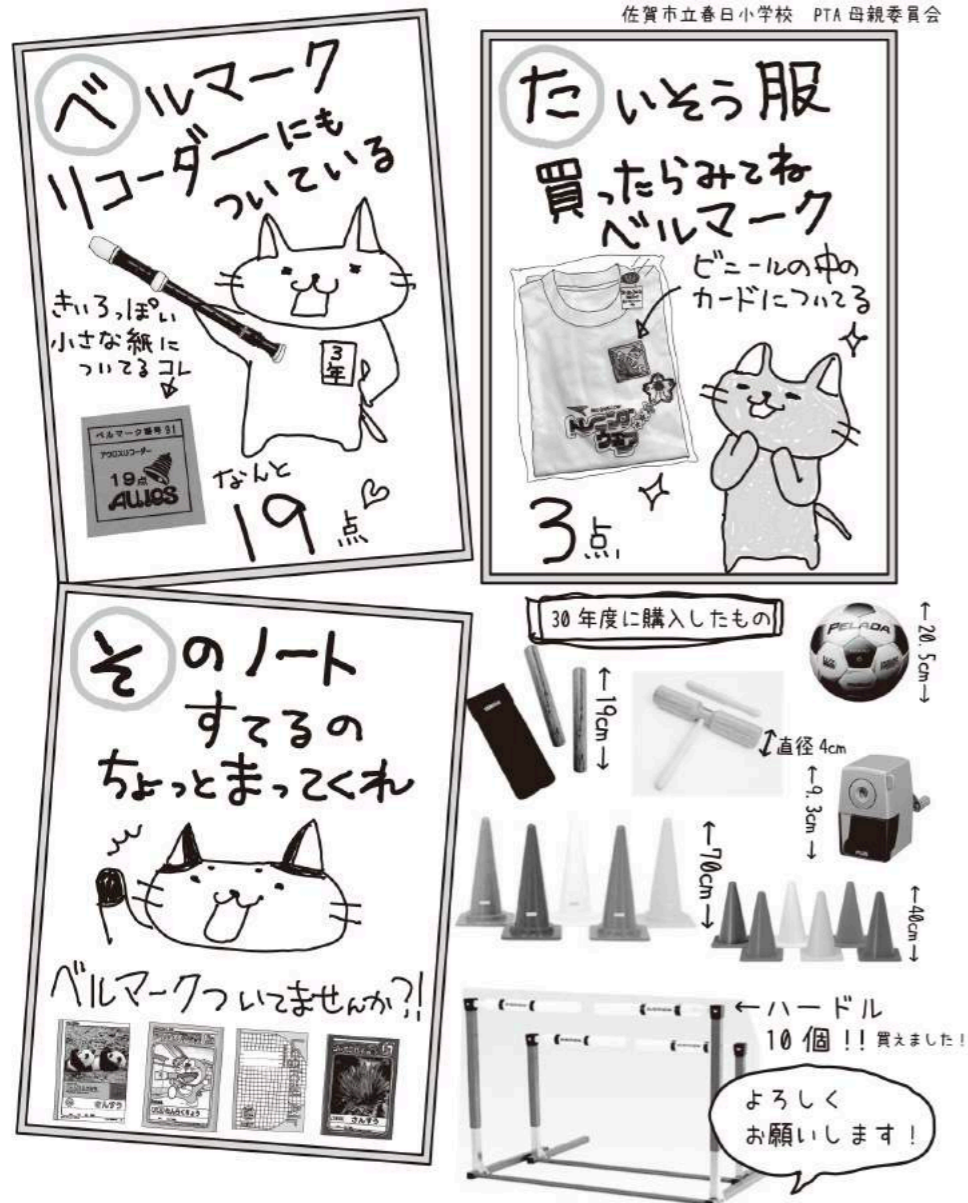 佐賀市立春日小学校 PTA 母親委員会
ベルマーク
リコーダーにも
ついている
きいろっぽい
小さな紙に
ついてるコレ
3年
ベルマーク番号 91
アウロスリコーダー
19点
AULOS
なんと
19点
たいそう服
買ったらみてね
ベルマーク
ビニールの中の
カードについてる
トレーニング
ウエア
3点
そのノート
すてるの
ちょっとまってくれ
ベルマークついてませんか?!
さんすう
れんらくちょう
さんすう
30年度に購入したもの
←19cm→
直径4cm
PELADA
←20.5cm→
←9.3cm→
PLUS
←70cm→
←40cm→
←ハードル
10個!!買えました!
よろしく
お願いします!